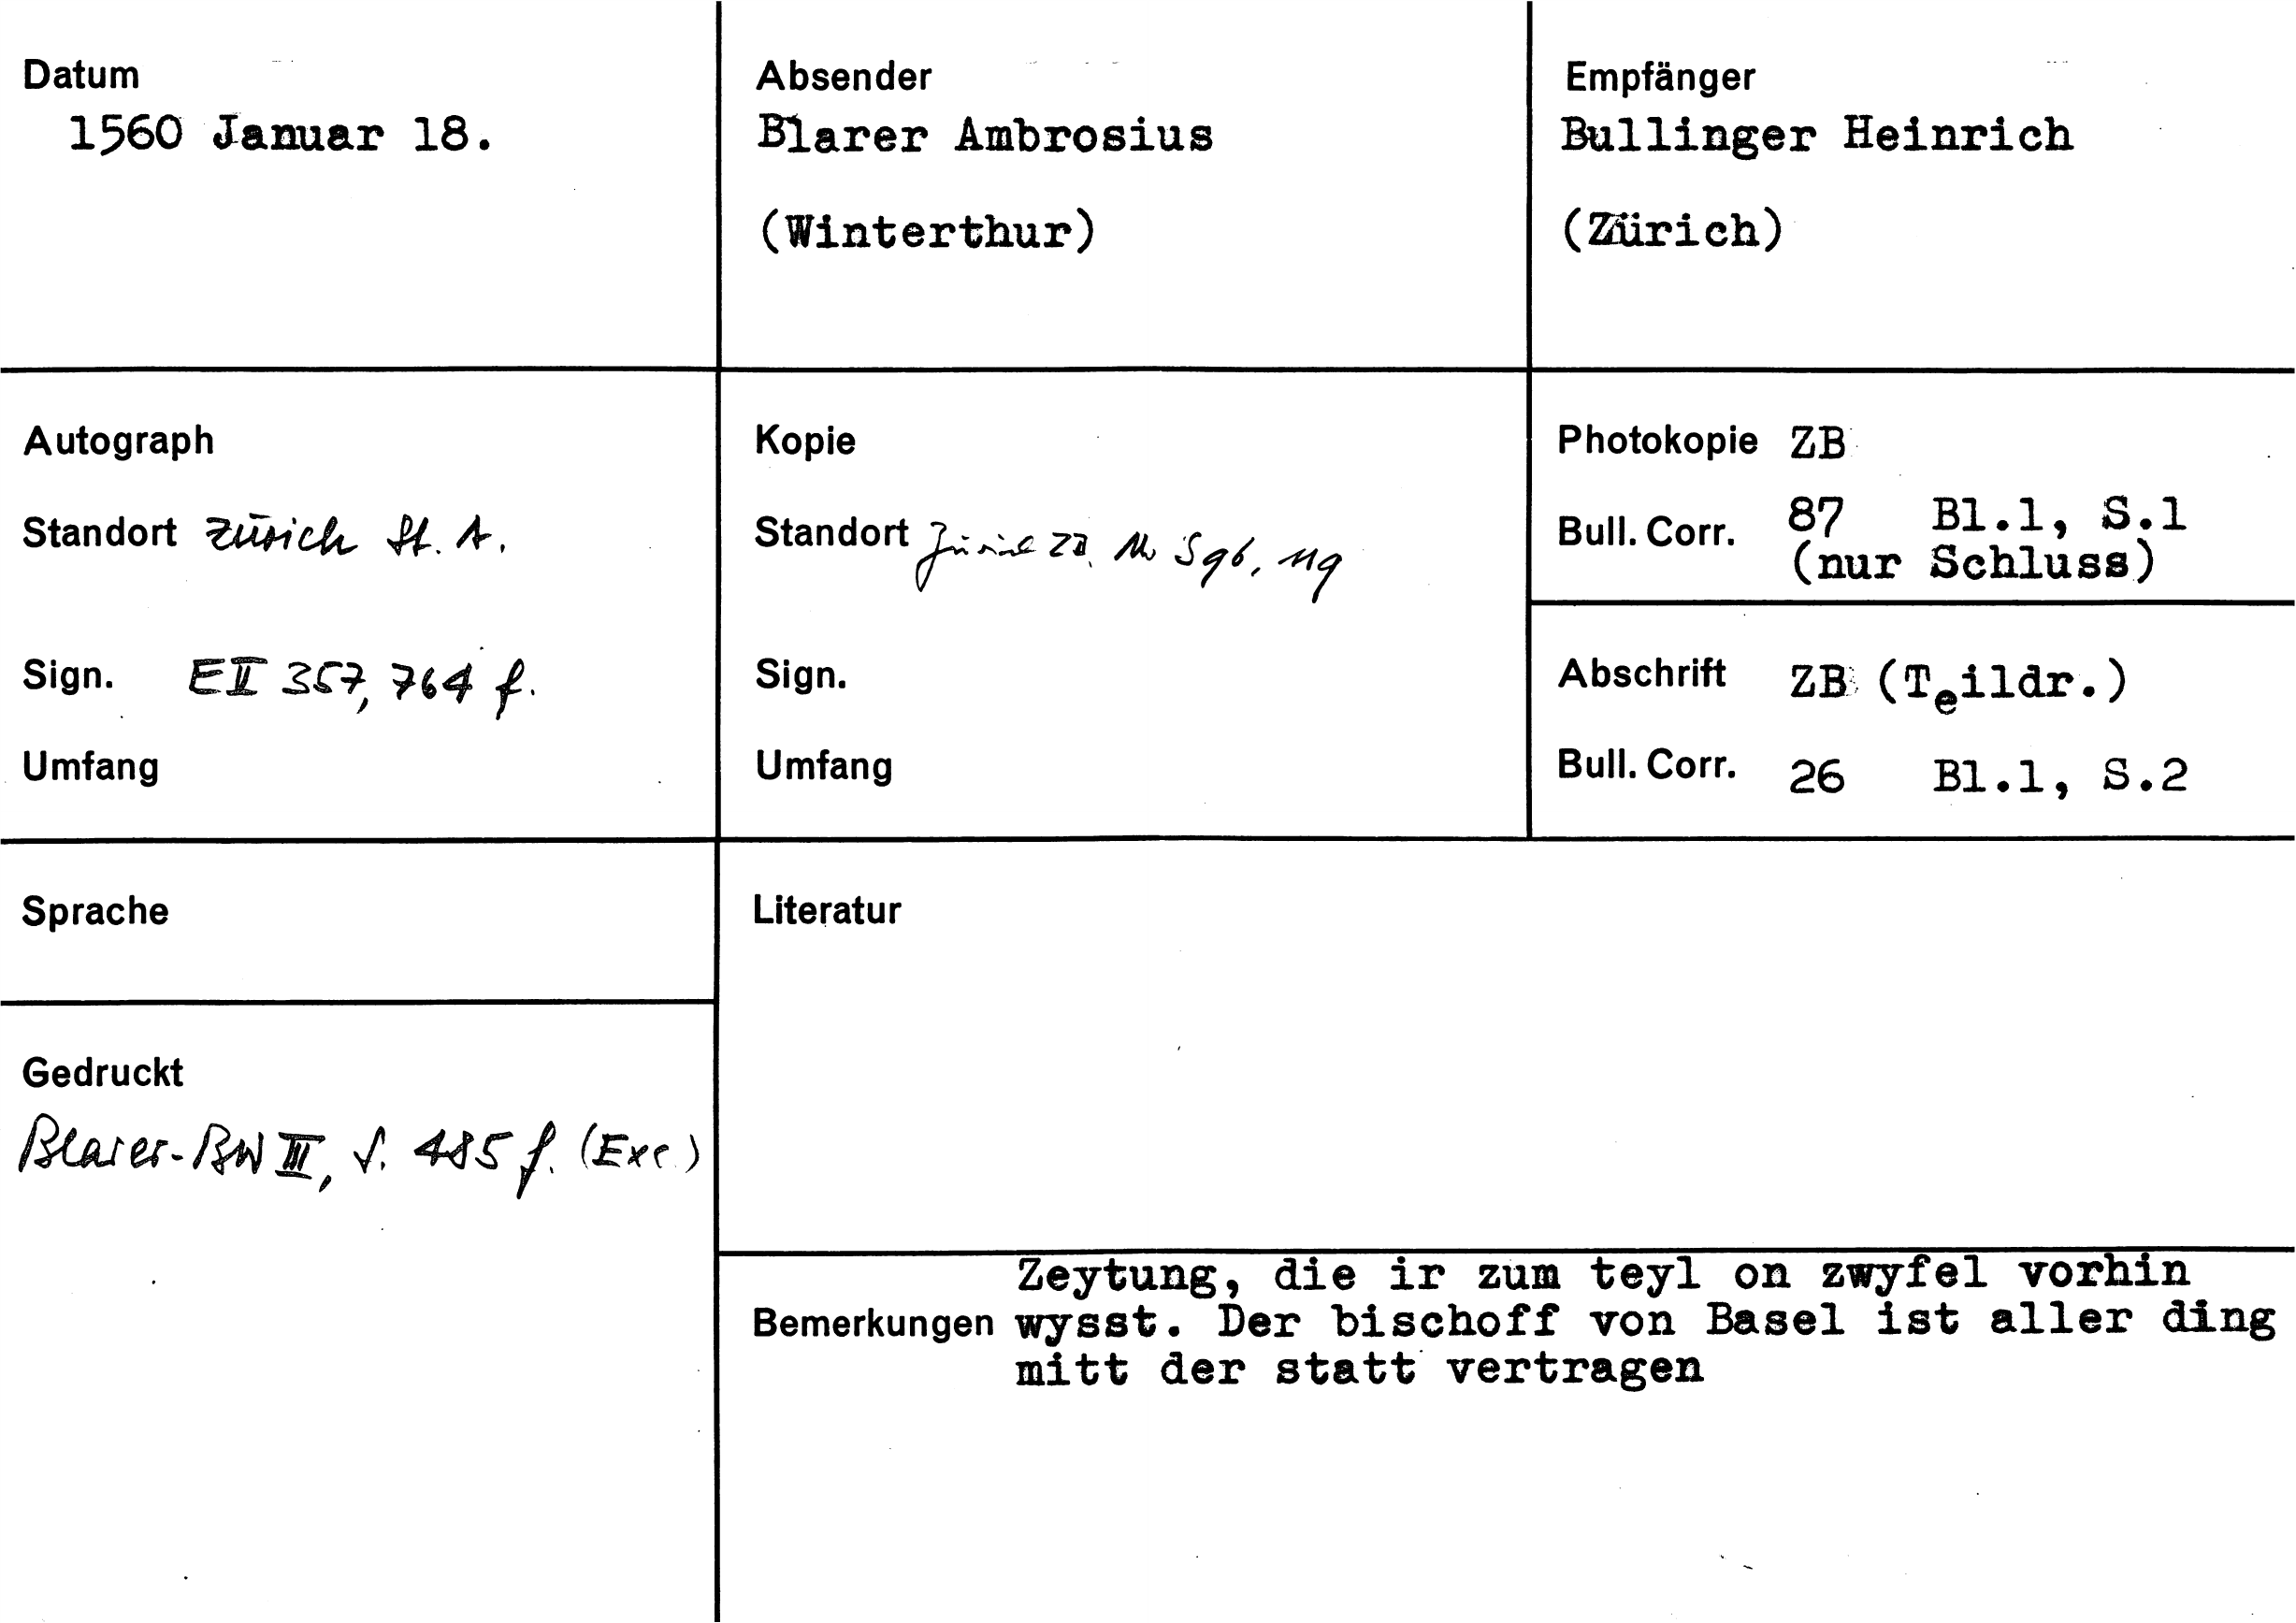 Datum
1560 Januar 18.
Absender
Blarer Ambrosius
(Winterthur)
Empfänger
Bullinger Heinrich
(Zürich)
Autograph
Standort Zürich St. A.
Sign. EII 357, 764 f.
Umfang
Kopie
Standort Zürich ZB, Ms S 96, 119
Sign.
Umfang
Photokopie ZB
Bull. Corr. 87 Bl.1, S.1
(nur Schluss)
Abschrift ZB (Teildr.)
Bull. Corr. 26 Bl.1, S.2
Sprache
Gedruckt
Blarer-BW III, S. 485 f. (Exc.)
Literatur
Bemerkungen
Zeytung, die ir zum teyl on zwyfel vorhin
wysst. Der bischoff von Basel ist aller ding
mitt der statt vertragen